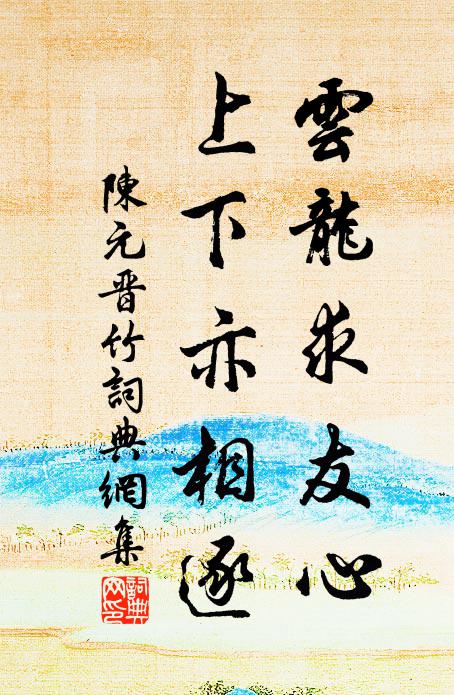 雲龍求友心
上下亦相逐
陳元晋竹詞典網集
詞典